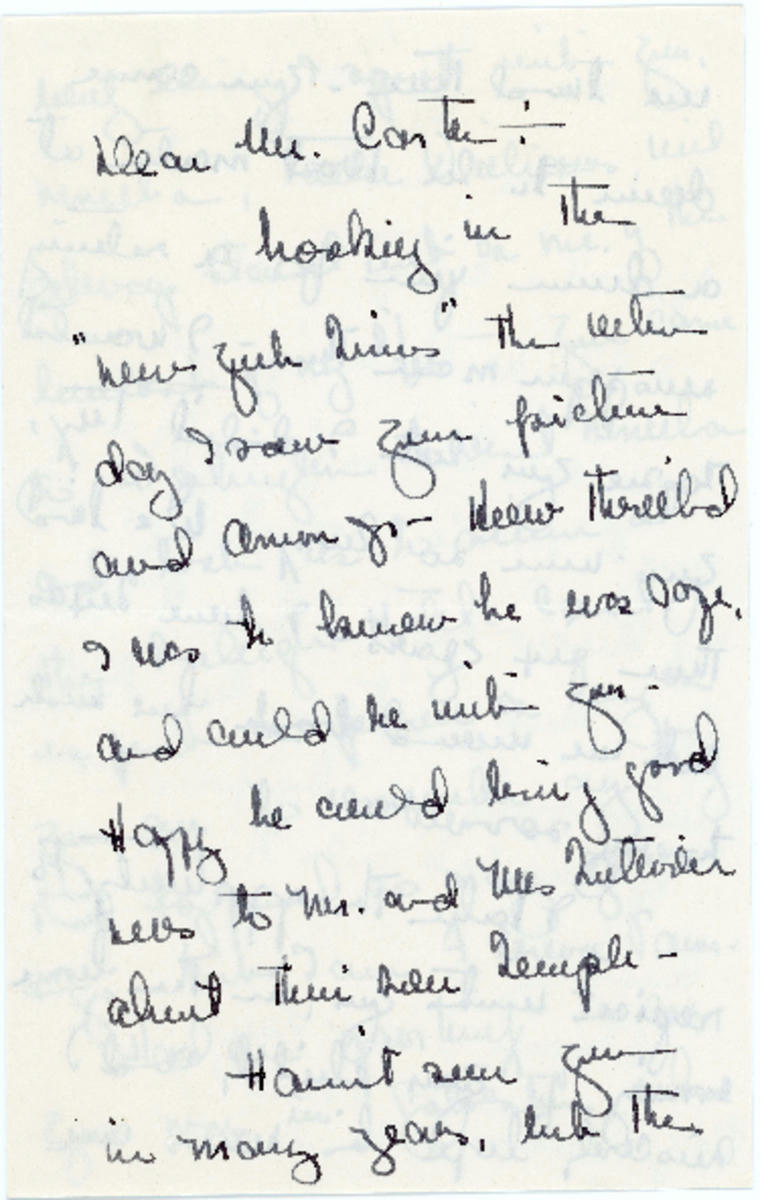 Dear Mr. Carter :-
Looking in the
"New York Times" the other
day I saw your picture
and among -
I was to know he was
and could he with you -
Happy he could bring good
news to Mr. and Mrs
about their son Temple -
Haven't seen you
in many years, but the